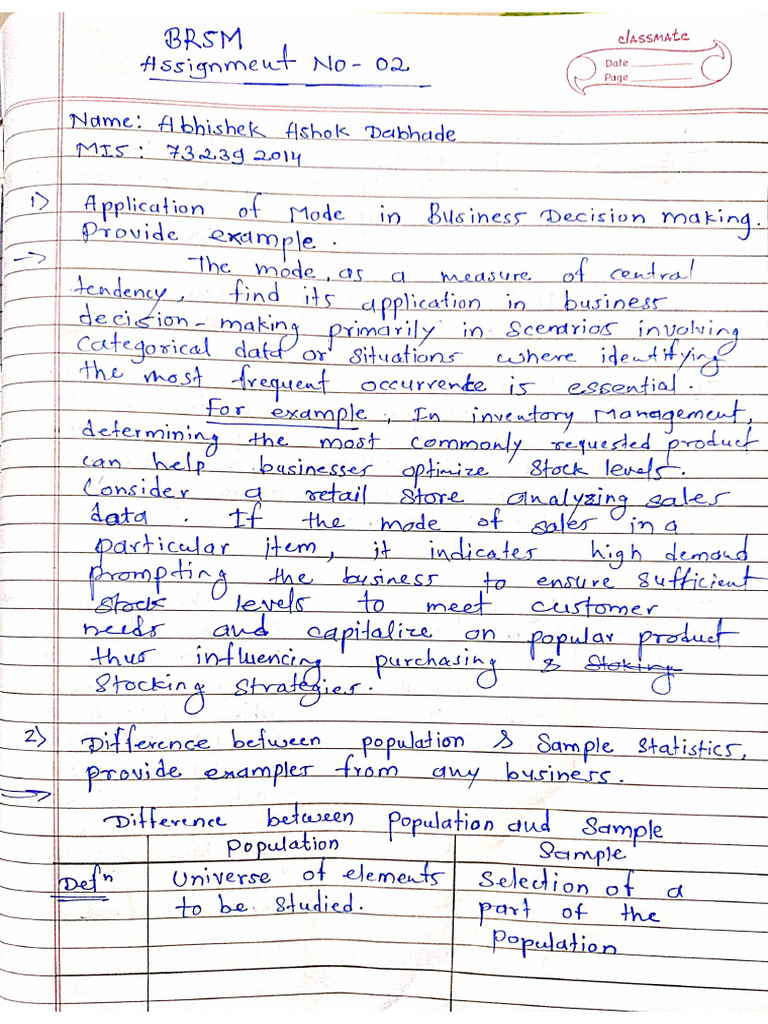 BRSM
Assignment No - 02
classmate
Date
Page
Name: Abhishek Ashok Dabhade
MIS: 732392014
1) Application of Mode in Business Decision making.
Provide example.
→ The mode, as a measure of central
tendency, find its application in business
decision-making primarily in scenarios involving
categorical data or situations where identifying
the most frequent occurrence is essential.
For example, In inventory Management,
determining the most commonly requested product
can help businesses optimize stock levels.
Consider a retail store analyzing sales
data. If the mode of sales in a
particular item, it indicates high demand
prompting the business to ensure sufficient
stock levels to meet customer
needs and capitalize on popular product
thus influencing purchasing & Stoking
Stocking Strategies.
2) Difference between population & Sample Statistics,
provide examples from any business.
⇒
Difference between Population and Sample
Population Sample
Defⁿ Universe of elements Selection of a
to be studied. part of the
population